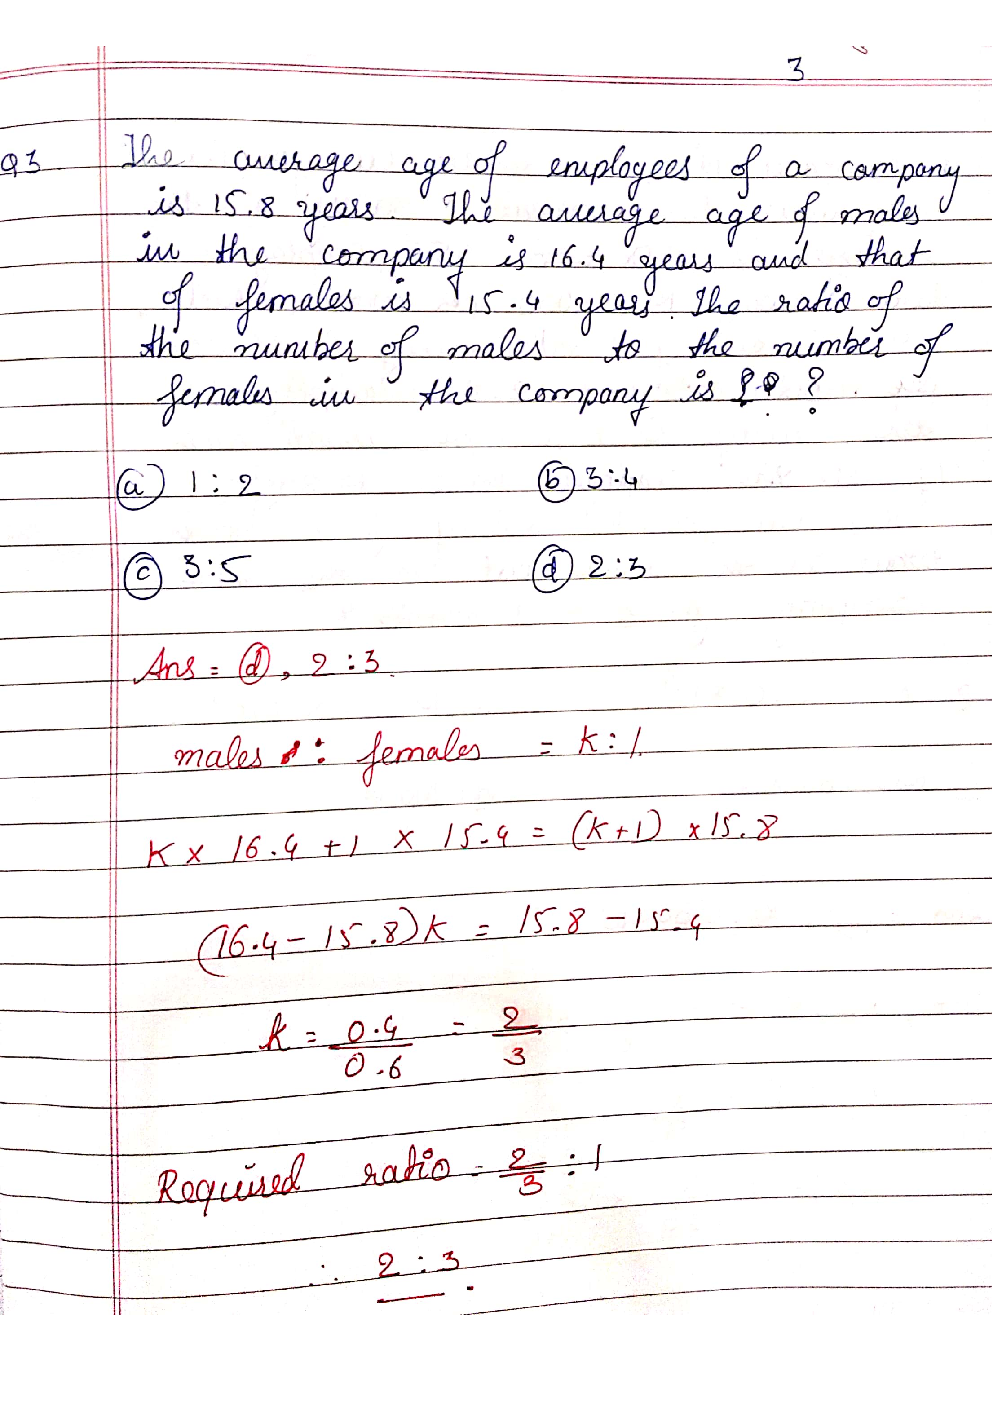 3
Q3 The average age of employees of a company
is 15.8 years. The average age of males
in the company is 16.4 years and that
of females is 15.4 years. The ratio of
the number of males to the number of
females in the company is ?
(a) 1:2 (b) 3:4
(c) 3:5 (d) 2:3
Ans = (d), 2:3.
males : females = k:1.
K x 16.4 + 1 x 15.4 = (k+1) x 15.8
(16.4 - 15.8)k = 15.8 - 15.4
k = 0.4/0.6 = 2/3
Required ratio = 2/3 : 1
∴ 2:3.